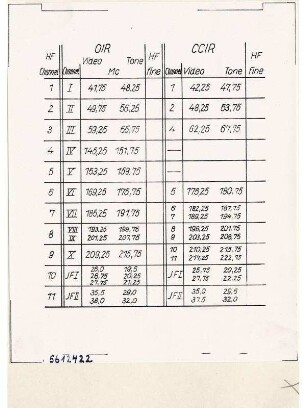 OIR CCIR
HF Channel Channel Video Tone HF fine Channel Video Tone HF fine
Mc
1 I 41,75 48,25 1 42,25 47,75
2 II 49,75 56,25 2 49,25 53,75
3 III 59,25 65,75 4 62,25 67,75
4 IV 145,25 151,75 —
5 V 153,25 159,75 —
6 VI 169,25 175,75 5 175,25 180,75
7 VII 185,25 191,75 6 182,25 187,75
7 189,25 194,75
8 VIII 193,25 199,75 8 196,25 201,75
IX 201,25 207,75 9 203,25 208,75
9 X 209,25 215,75 10 210,25 215,75
11 217,25 222,75
10 JFI 19,5
20,25
27,75 21,25
JFI 25,75 20,25
27,75 22,25
11 JFII 35,5 29,0
38,0 32,0
JFII 35,0 29,5
37,5 32,0
5612422